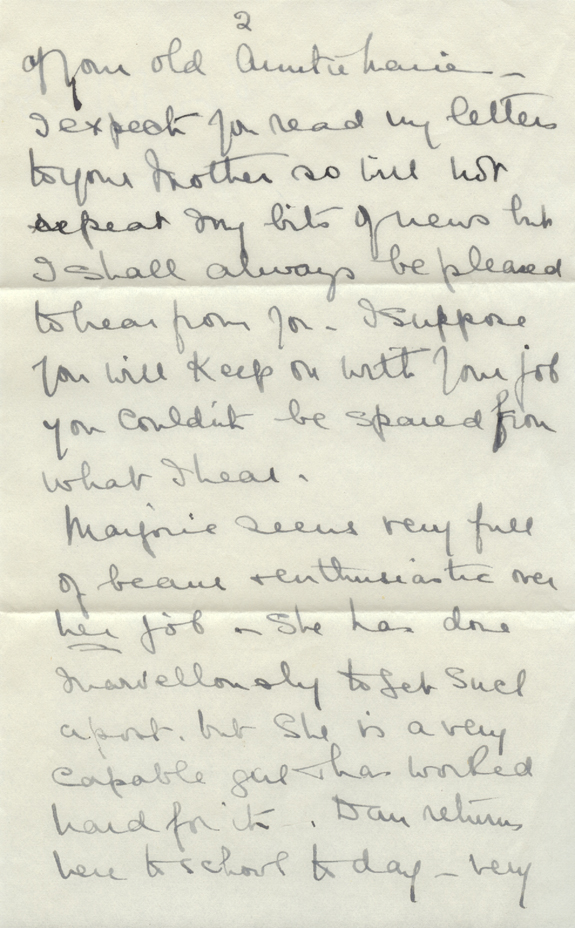 2
of your old Auntie Marie -
I expect you read my letters
to your Mother so will not
repeat my bits of news but
I shall always be pleased
to hear from you - I suppose
you will keep on with your job
you couldn't be spared from
what I hear.
Marjorie seems very full
of beans + enthusiastic over
her job - She has done
marvellously to get such
a post. but She is a very
capable girl + has worked
hard for it. Dan returns
here to school to day - very